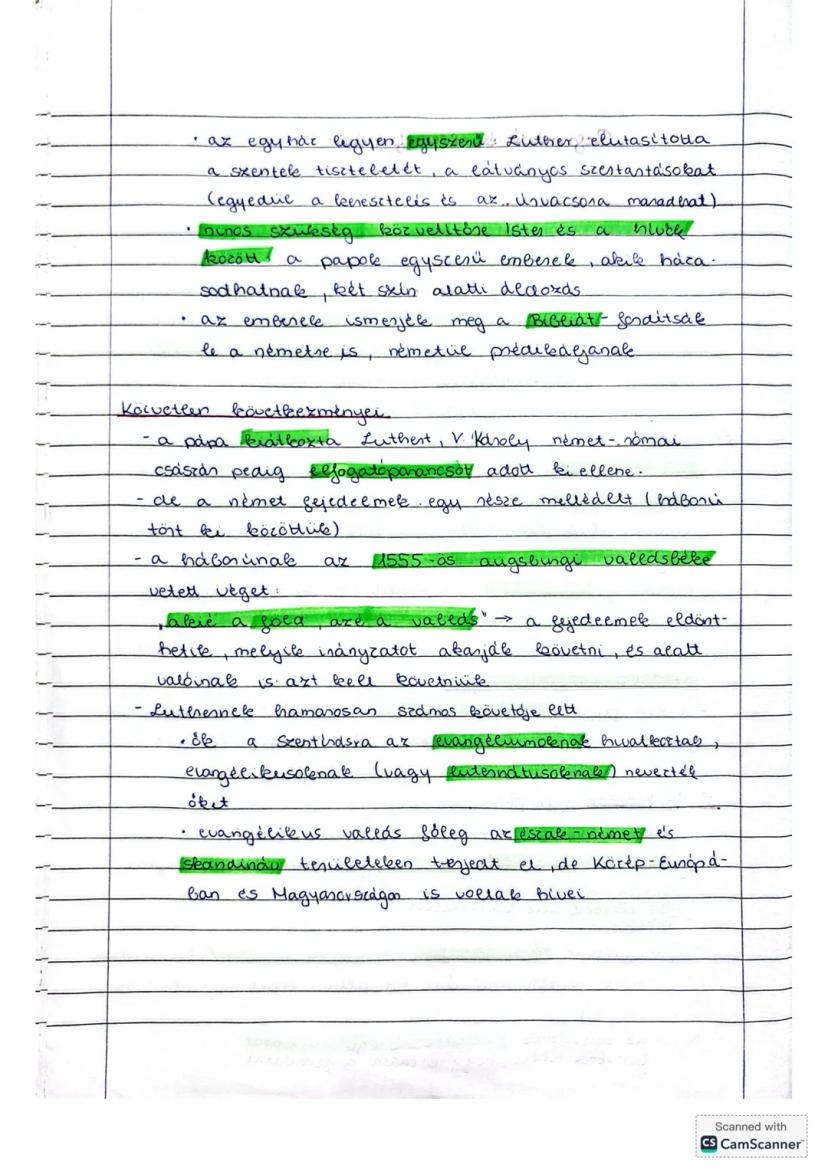 · az egyház legyen egyszerű: Luther elutasította
a szentek tiszteletét, a látványos szertartásokat
(egyedül a keresztelés és az Úrvacsora maradhat)
· nincs szükség közvetítőre Isten és a hívők
között / a papok egyszerű emberek, akik háza-
sodhatnak, két szín alatti áldozás
· az emberek ismerjék meg a Bibliát - fordítsák
le a németre is, németül prédikáljanak
Közvetlen következményei
- a pápa kiátkozta Luthert, V. Károly német-római
császár pedig elfogatóparancsot adott ki ellene.
- de a német fejedelmek egy része mellé állt (háború
tört ki közöttük)
- a háborúnak az 1555-ös augsburgi vallásbéke
vetett véget:
„akié a föld, azé a vallás" → a fejedelmek eldönt-
hetik, melyik irányzatot akarják követni, és alatt
valóinak is azt kell követniük
- Luthernek hamarosan számos követője lett
· ők a Szentírásra az evangéliumoknak hivatkoztak,
evangélikusoknak (vagy lutheránusoknak) nevezték
őket
· evangélikus vallás főleg az észak-német és
skandináv területeken terjedt el, de Közép-Európá-
ban és Magyarországon is voltak hívei
Scanned with
CS CamScanner